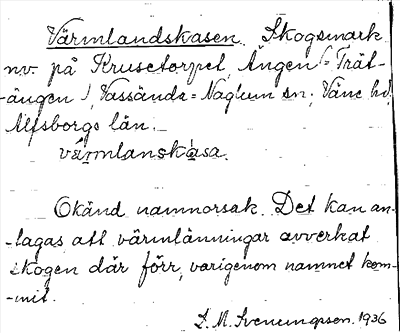 Värmlandskasen. Skogsmark
nv. på Krusetorpet, Ängen (= Trät-
-ängen), Vassända = Naglum sn; Väne hd,
Älfsborgs län.
värmlanskasa.
Okänd namnorsak. Det kan an-
-tagas att värmlänningar avverkat
skogen där förr, varigenom namnet kom-
-mit.
S. M. Svenungsson. 1936